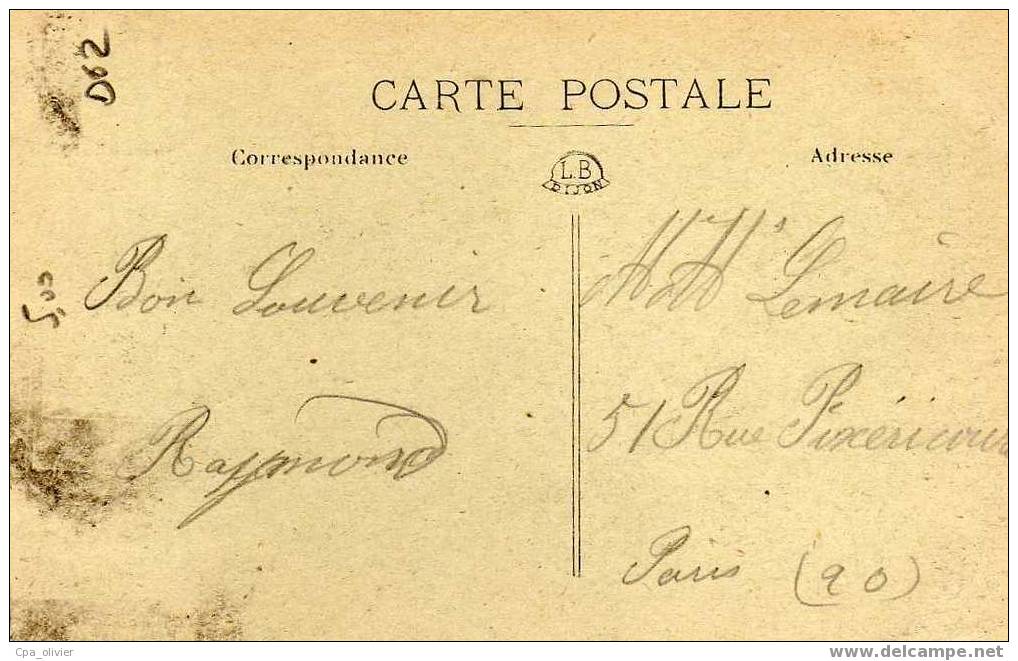 D62
CARTE POSTALE
Correspondance
L.B
DIJON
Adresse
5,00
Bon Souvenir
Raymond
Lemaire
51 Rue Pixéricour
Paris (20)
Cpa_olivier
www.delcampe.net